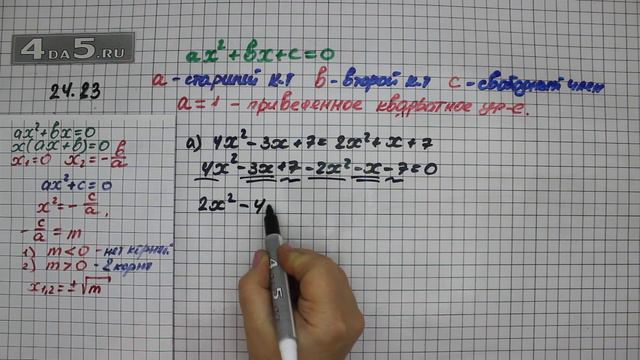 4DA5.RU
24.23
ax²+bx+c=0
a-старший к.т b-второй к.т c-свободный член
a=1 - приведенное квадратное ур-е.
ax²+bx=0
x(ax+b)=0
x₁=0 x₂=-b/a
ax²+c=0
x²=-c/a.
-c/a=m
1) m<0 - нет корней
2) m>0 - 2 корня
x₁,₂=±√m
a) 4x²-3x+7=2x²+x+7
4x²-3x+7-2x²-x-7=0
2x²-4
4DA5